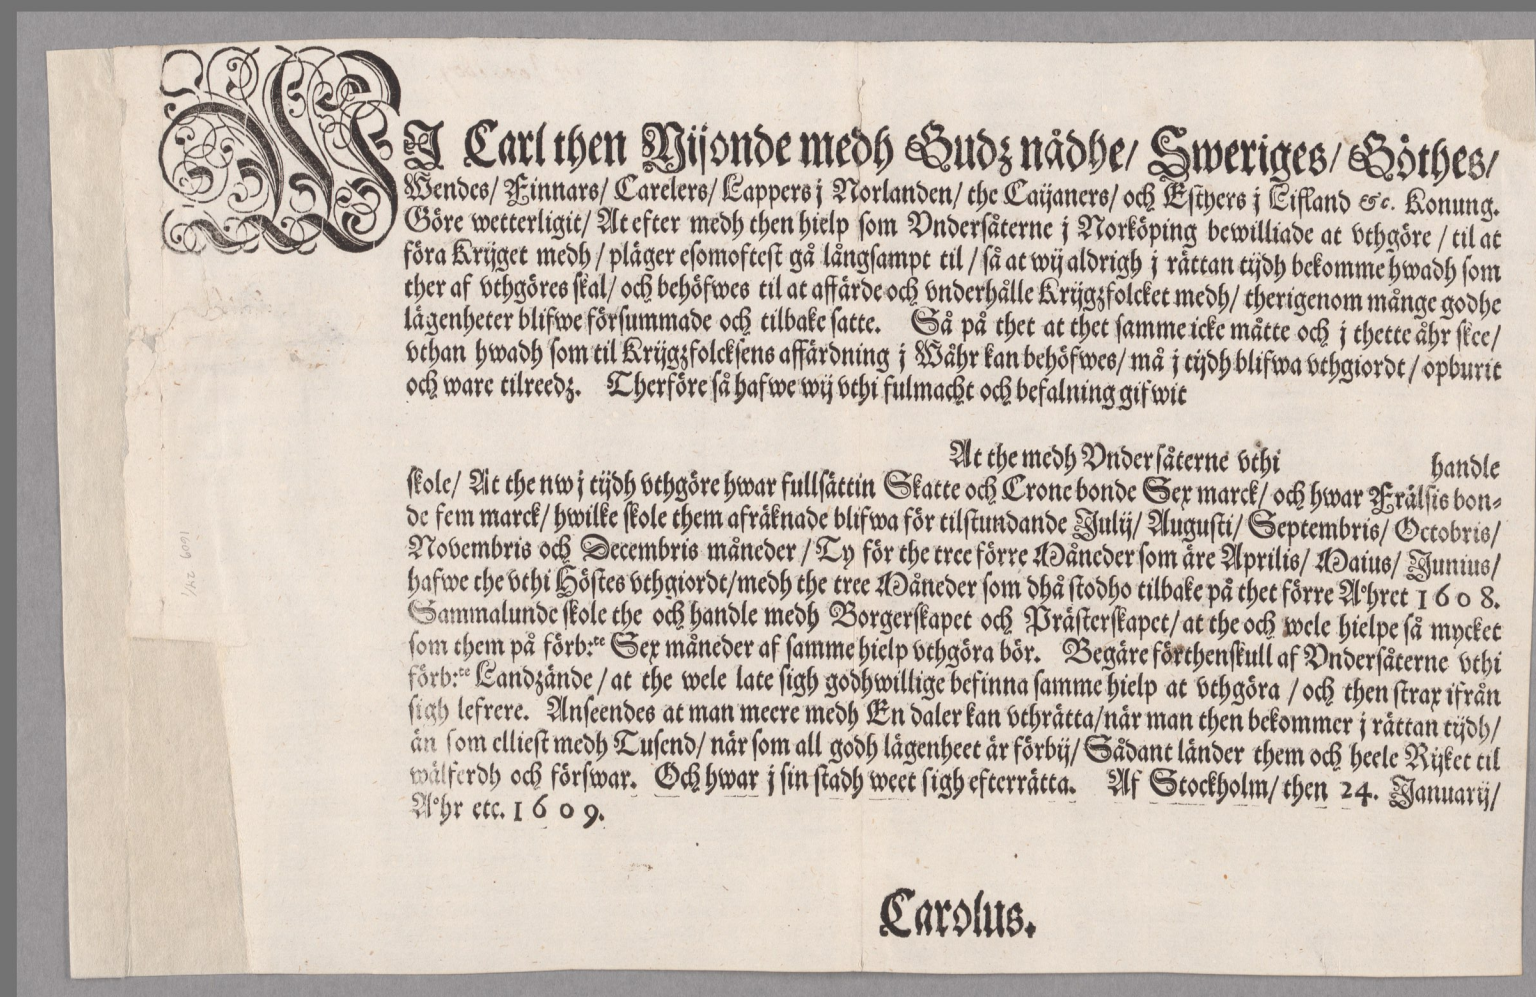 WJ Carl then Nijonde medh Gudz nådhe/ Sweriges/ Göthes/
Wendes/ Finnars/ Carelers/ Lappers j Norlanden/ the Caijaners/ och Esthers j Lifland &c. Konung.
Göre wetterligit/ At efter medh then hielp som Vndersåterne j Norköping bewilliade at vthgöre / til at
föra Krijget medh / pläger esomoftest gå långsampt til / så at wij aldrigh j rättan tijdh bekomme hwadh som
ther af vthgöres skal/ och behöfwes til at affärde och vnderhålle Krijgzfolcket medh/ therigenom månge godhe
lägenheter blifwe försummade och tilbake satte. Så på thet at thet samme icke måtte och j thette åhr skee/
vthan hwadh som til Krijgzfolcksens affärdning j Wåhr kan behöfwes/ må j tijdh blifwa vthgiordt / opburit
och ware tilreedz. Therföre så hafwe wij vthi fulmacht och befalning gifwit
At the medh Vndersåterne vthi handle
skole/ At the nw j tijdh vthgöre hwar fullsättin Skatte och Crone bonde Sex marck/ och hwar Frälsis bon-
de fem marck/ hwilke skole them afräknade blifwa för tilstundande Julij/ Augusti/ Septembris/ Octobris/
Novembris och Decembris måneder / Ty för the tree förre Måneder som äre Aprilis/ Maius/ Junius/
hafwe the vthi Höstes vthgiordt/ medh the tree Måneder som dhå stodho tilbake på thet förre Åhret 1608.
Sammalunde skole the och handle medh Borgerskapet och Prästerskapet/ at the och wele hielpe så mycket
som them på förb:te Sex måneder af samme hielp vthgöra bör. Begäre förthenskull af Vndersåterne vthi
förb:te Landzände / at the wele late sigh godhwillige befinna samme hielp at vthgöra / och then strax ifrån
sigh lefrere. Anseendes at man meere medh En daler kan vthrätta/ när man then bekommer j rättan tijdh/
än som elliest medh Tusend/ när som all godh lägenheet är förbij/ Sådant länder them och heele Rijket til
wälferdh och förswar. Och hwar j sin stadh weet sigh efterrätta. Af Stockholm/ then 24. Januarij/
Åhr etc. 1609.
Carolus.
1609 24/1